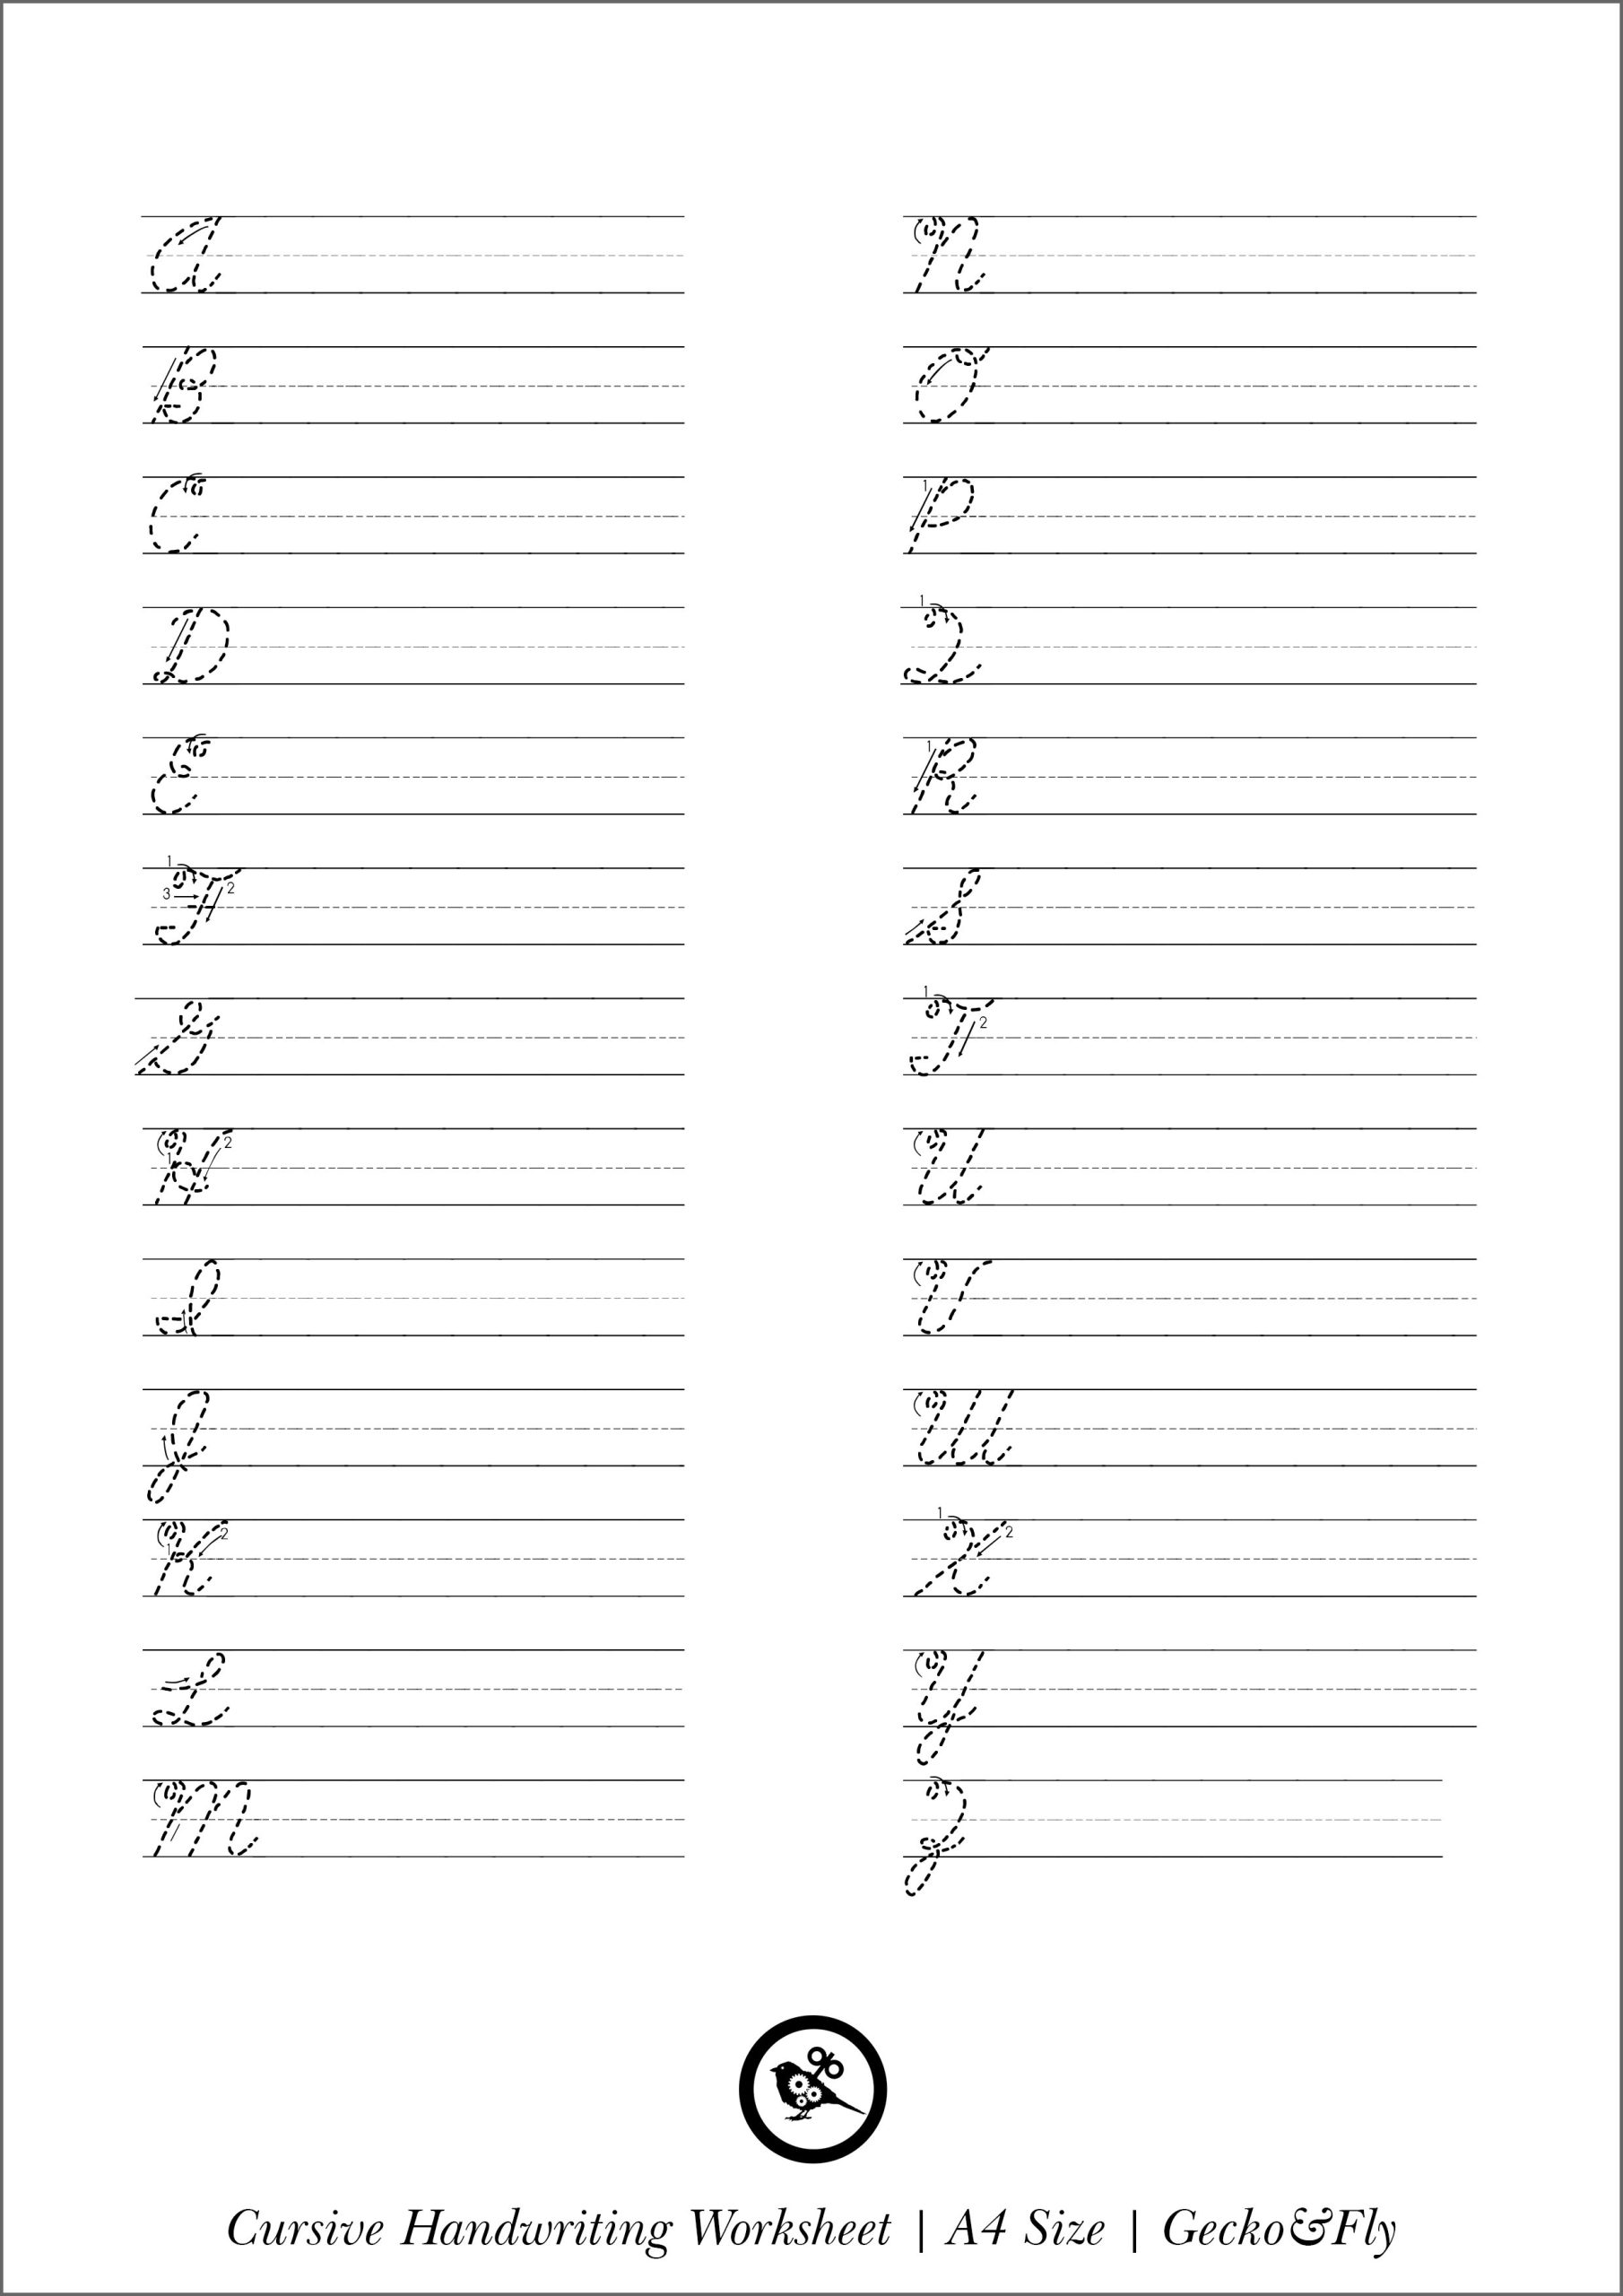 A
B
C
D
E
1 3 2 F
G
1 2 H
I
J
1 2 K
L
M
N
O
1 P
1 Q
1 R
S
1 2 T
U
V
W
1 2 X
Y
Z
Cursive Handwriting Worksheet | A4 Size | Gecko&Fly